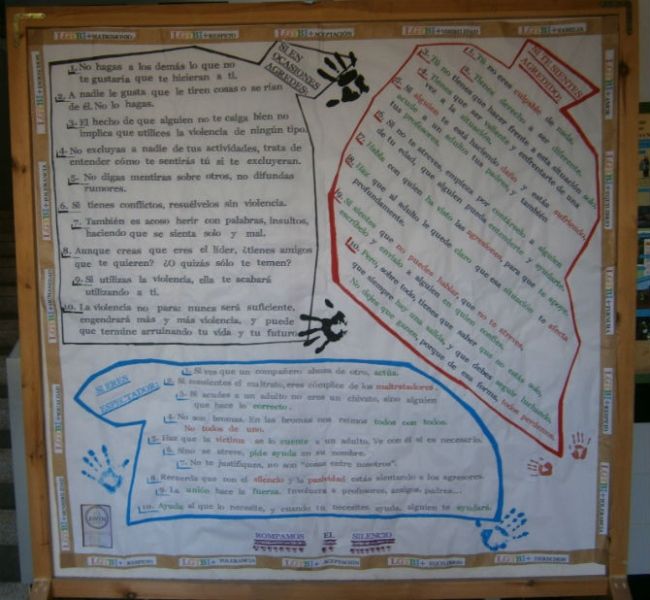 LGTBI+ MATRIMONIO
LGTBI+ RESPETO
LGTBI+ ACEPTACIÓN
LGTBI+ FAMILIA
SI EN
OCASIONES
AGREDES:
1. No hagas a los demás lo que no
te gustaría que te hicieran a ti.
2. A nadie le gusta que le tiren cosas o se rían
de él. No lo hagas.
3. El hecho de que alguien no te caiga bien no
implica que utilices la violencia de ningún tipo.
4. No excluyas a nadie de tus actividades, trata de
entender cómo te sentirás tú si te excluyeran.
5. No digas mentiras sobre otros, no difundas
rumores.
6. Si tienes conflictos, resuélvelos sin violencia.
7. También es acoso herir con palabras, insultos,
haciendo que se sienta solo y mal.
8. Aunque creas que eres el líder, ¿tienes amigos
que te quieren? ¿O quizás sólo te temen?
9. Si utilizas la violencia, ella te acabará
utilizando a ti.
10. La violencia no para: nunca será suficiente,
engendrará más y más violencia, y puede
que termine arruinando tu vida y tu futuro.
SI TE SIENTES
AGREDIDO:
1. Tú no eres culpable de nada.
2. Tienes derecho a ser diferente.
3. Tú no tienes que hacer frente a esta situación solo.
4. Tienes que ser valiente y enfrentarte de una
vez a la situación.
5. Si alguien te está haciendo daño y estás sufriendo,
acude a un adulto: tus padres y también
tus profesores.
6. Si no te atreves, empieza por contárselo a alguien
de tu edad, que alguien pueda entenderte y ayudarte.
7. Habla con quien ha visto las agresiones, para que te apoye.
8. Haz que al adulto le quede claro que esa situación te afecta
profundamente.
9. Si sientes que no puedes hablar, que no te atreves,
escríbelo y envíalo a alguien en quien confíes.
10. Pero, sobre todo, tienes que saber que no estás solo,
que siempre hay una salida, y que debes seguir luchando.
No dejes que ganen, porque de esa forma, todos perdemos.
SI ERES
ESPECTADOR:
1. Si ves que un compañero abusa de otro, actúa.
2. Si consientes el maltrato, eres cómplice de los maltratadores.
3. Si acudes a un adulto no eres un chivato, sino alguien
que hace lo correcto.
4. No son bromas. En las bromas nos reímos todos con todos.
No todos de uno.
5. Haz que la víctima se lo cuente a un adulto. Ve con él si es necesario.
6. Si no se atreve, pide ayuda en su nombre.
7. No te justifiques, no son "cosas entre nosotros".
8. Recuerda que con el silencio y la pasividad estás alentando a los agresores.
9. La unión hace la fuerza. Involucra a profesores, amigos, padres...
10. Ayuda al que lo necesite, y cuando tú necesites ayuda, alguien te ayudará.
ROMPAMOS EL SILENCIO
LGTBI+ RESPETO
LGTBI+ TOLERANCIA
LGTBI+ ACEPTACIÓN
LGTBI+
LGTBI+ DERECHOS